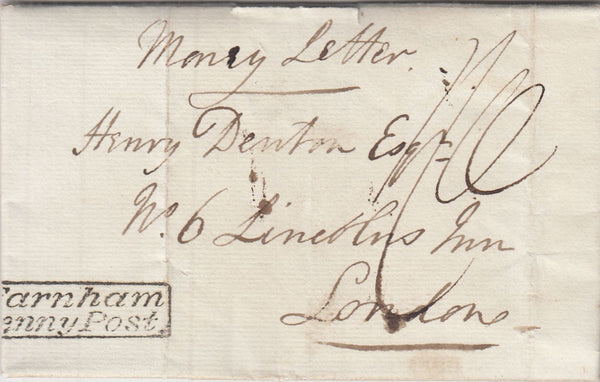 Money Letter.
Henry Denton Esqr
No. 6 Lincolns Inn
London
Farnham
Penny Post